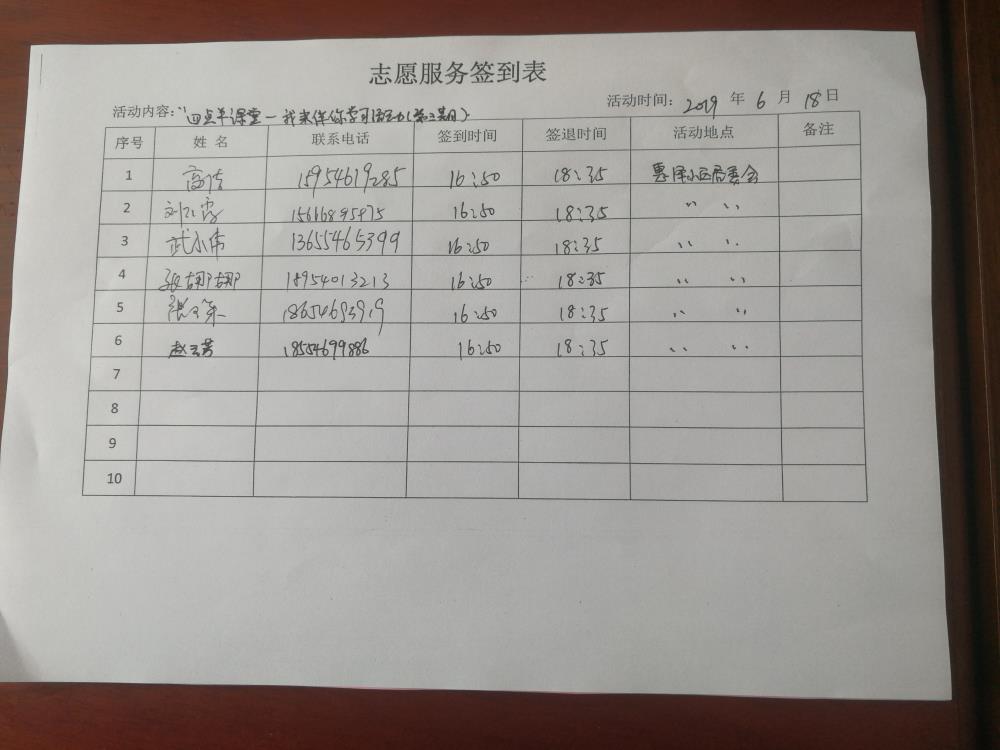 志愿服务签到表
活动内容:"四点半课堂—我来伴你学习活动(第三期)
活动时间: 2019 年 6 月 18 日
序号 姓名 联系电话 签到时间 签退时间 活动地点 备注
1 15954619285 16:50 18:35 惠泽小区居委会
2 16:50 18:35 〃 〃
3 武永伟 13655465399 16:50 18:35 〃 〃
4 张娜娜 18954013213 16:50 18:35 〃 〃
5 16:50 18:35 〃 〃
6 赵云芳 18554699886 16:50 18:35 〃 〃
7
8
9
10